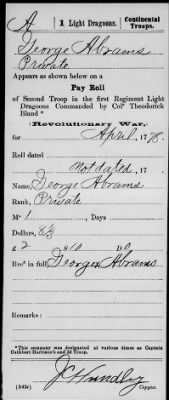 A | 1 Light Dragoons. | Continental Troops.
George Abrams
Private
Appears as shown below on a
Pay Roll
of Second Troop in the first Regiment Light
Dragoons Commanded by Colº Theodorick
Bland *
Revolutionary War,
for April, 1778.
Roll dated
Not dated, 17 .
Name, George Abrams
Rank, Private
Mº 1 , Days
Dollars, 8⅓
£ 2 10 0
Recd in full George Abrams
Remarks :
* This company was designated at various times as Captain
Cuthbert Harrison's and 2d Troop.
Copyist.